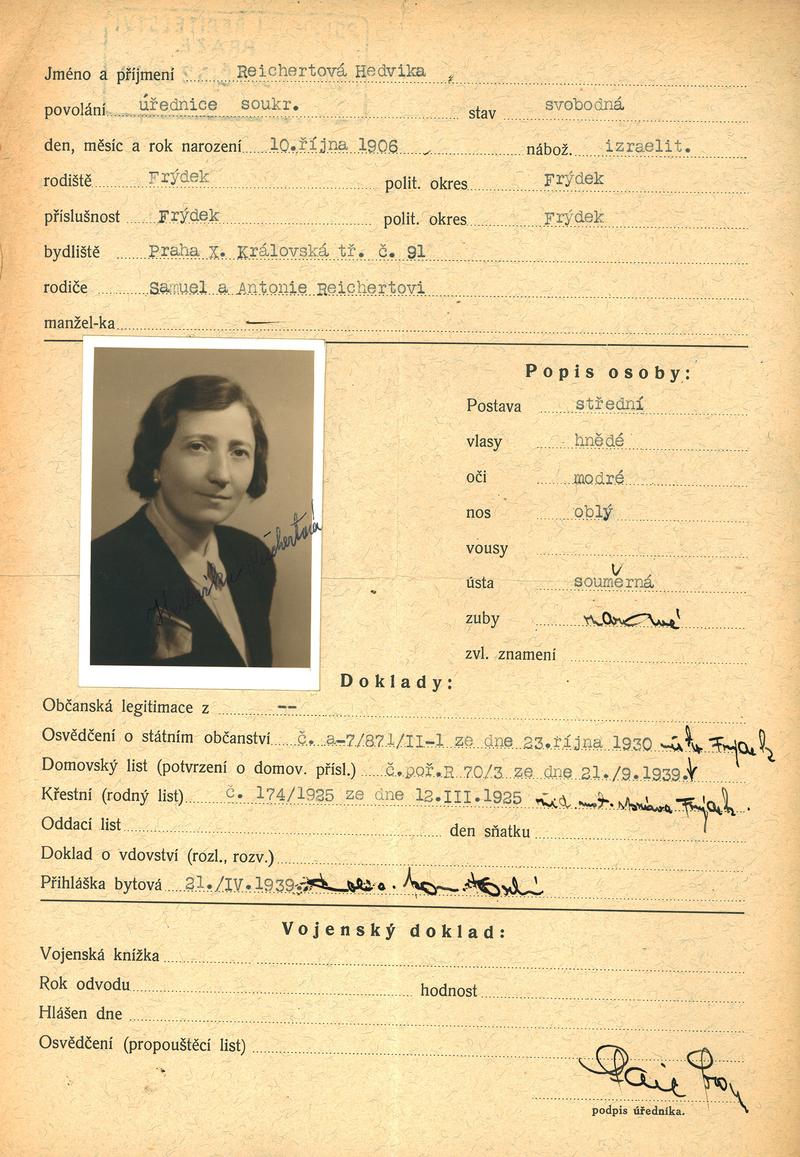 POLICEJNÍ ŘEDITELSTVÍ
PRAZE
Jméno a příjmení Reichertová Hedvika
povolání úřednice soukr. stav svobodná
den, měsíc a rok narození 10.října 1906 nábož. izraelit.
rodiště Frýdek polit. okres Frýdek
příslušnost Frýdek polit. okres Frýdek
bydliště Praha X. Královská tř. č. 91
rodiče Samuel a Antonie Reichertovi
manžel-ka —
Popis osoby:
Postava střední
vlasy hnědé
oči modré
nos oblý
vousy
ústa souměrná
zuby
zvl. znamení
Reichertová
Doklady:
Občanská legitimace z --
Osvědčení o státním občanství č. a-7/871/II-1 ze dne 23.října 1930 Frýdek
Domovský list (potvrzení o domov. přísl.) č.poř.R 70/3 ze dne 21./9.1939.
Křestní (rodný list) č. 174/1925 ze dne 12.III.1925 žid. mat. správa Frýdek.
Oddací list den sňatku
Doklad o vdovství (rozl., rozv.)
Přihláška bytová 21./IV.1939
Vojenský doklad:
Vojenská knížka
Rok odvodu hodnost
Hlášen dne
Osvědčení (propouštěcí list)
podpis úředníka.